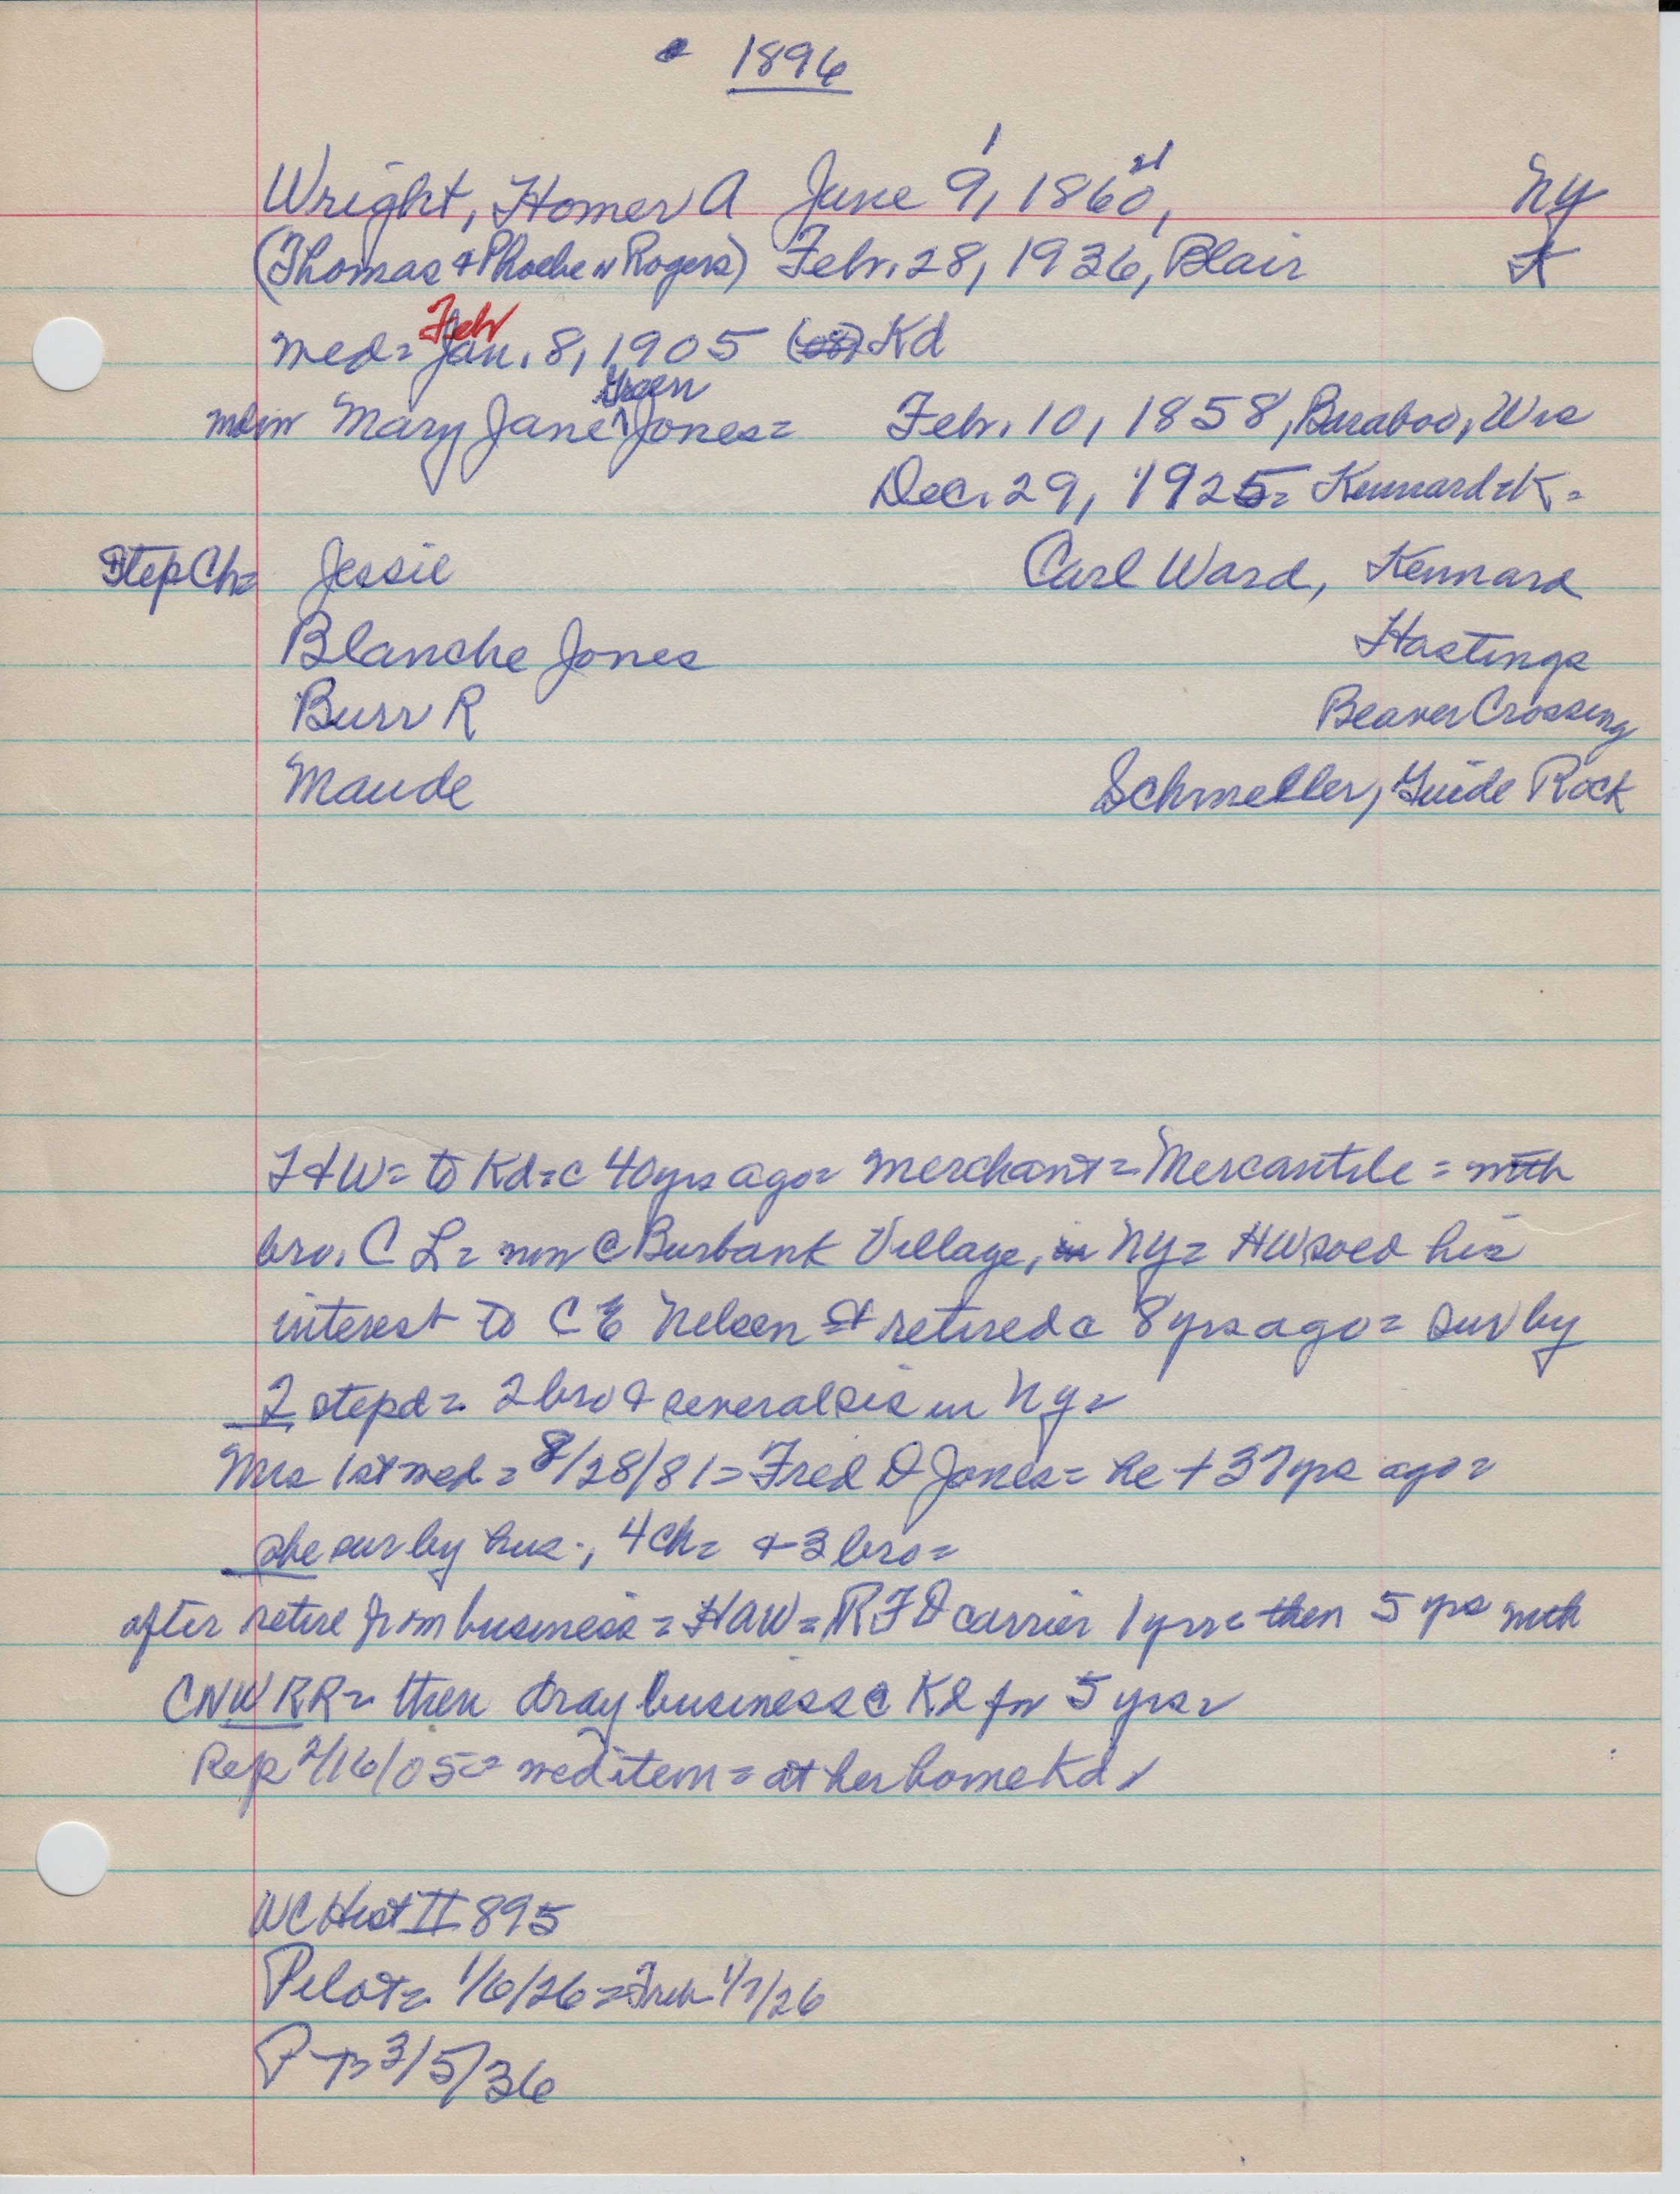 1896
Wright, Homer A June 9, 1860, NY
(Thomas & Phoebe n Rogers) Febr. 28, 1936, Blair K
med= Jan. 8, 1905 (08) Kd
Feb
Green
Mary Jane ^ Jones= Febr. 10, 1858, Baraboo, Wis
Dec. 29, 1925= Kennard=K=
Step Ch= Jessie Carl Ward, Kennard
Blanche Jones Hastings
Burr R Beaver Crossing
Maude Schmeller, Guide Rock
to Kd=c 40 yrs ago= merchant= Mercantile = with
bro. C L= now @ Burbank Village, in NY= HW sold his
interest to C E Nelsen & retired c 8 yrs ago= sur by
2 stepd= 2 bro & several sis in NY=
Mrs 1st wed= 8/28/81= Fred D Jones= he + 37 yrs ago=
she sur by hus., 4 ch= + 3 bro=
after retire from business= HAW= RFD carrier 1 yr= then 5 yrs with
CNW RR= then dray business @ Kd for 5 yrs=
Rep 2/16/05= wed item= at her home Kd
WC Hist II 895
Pilot= 1/6/26= 1/7/26
3/5/36